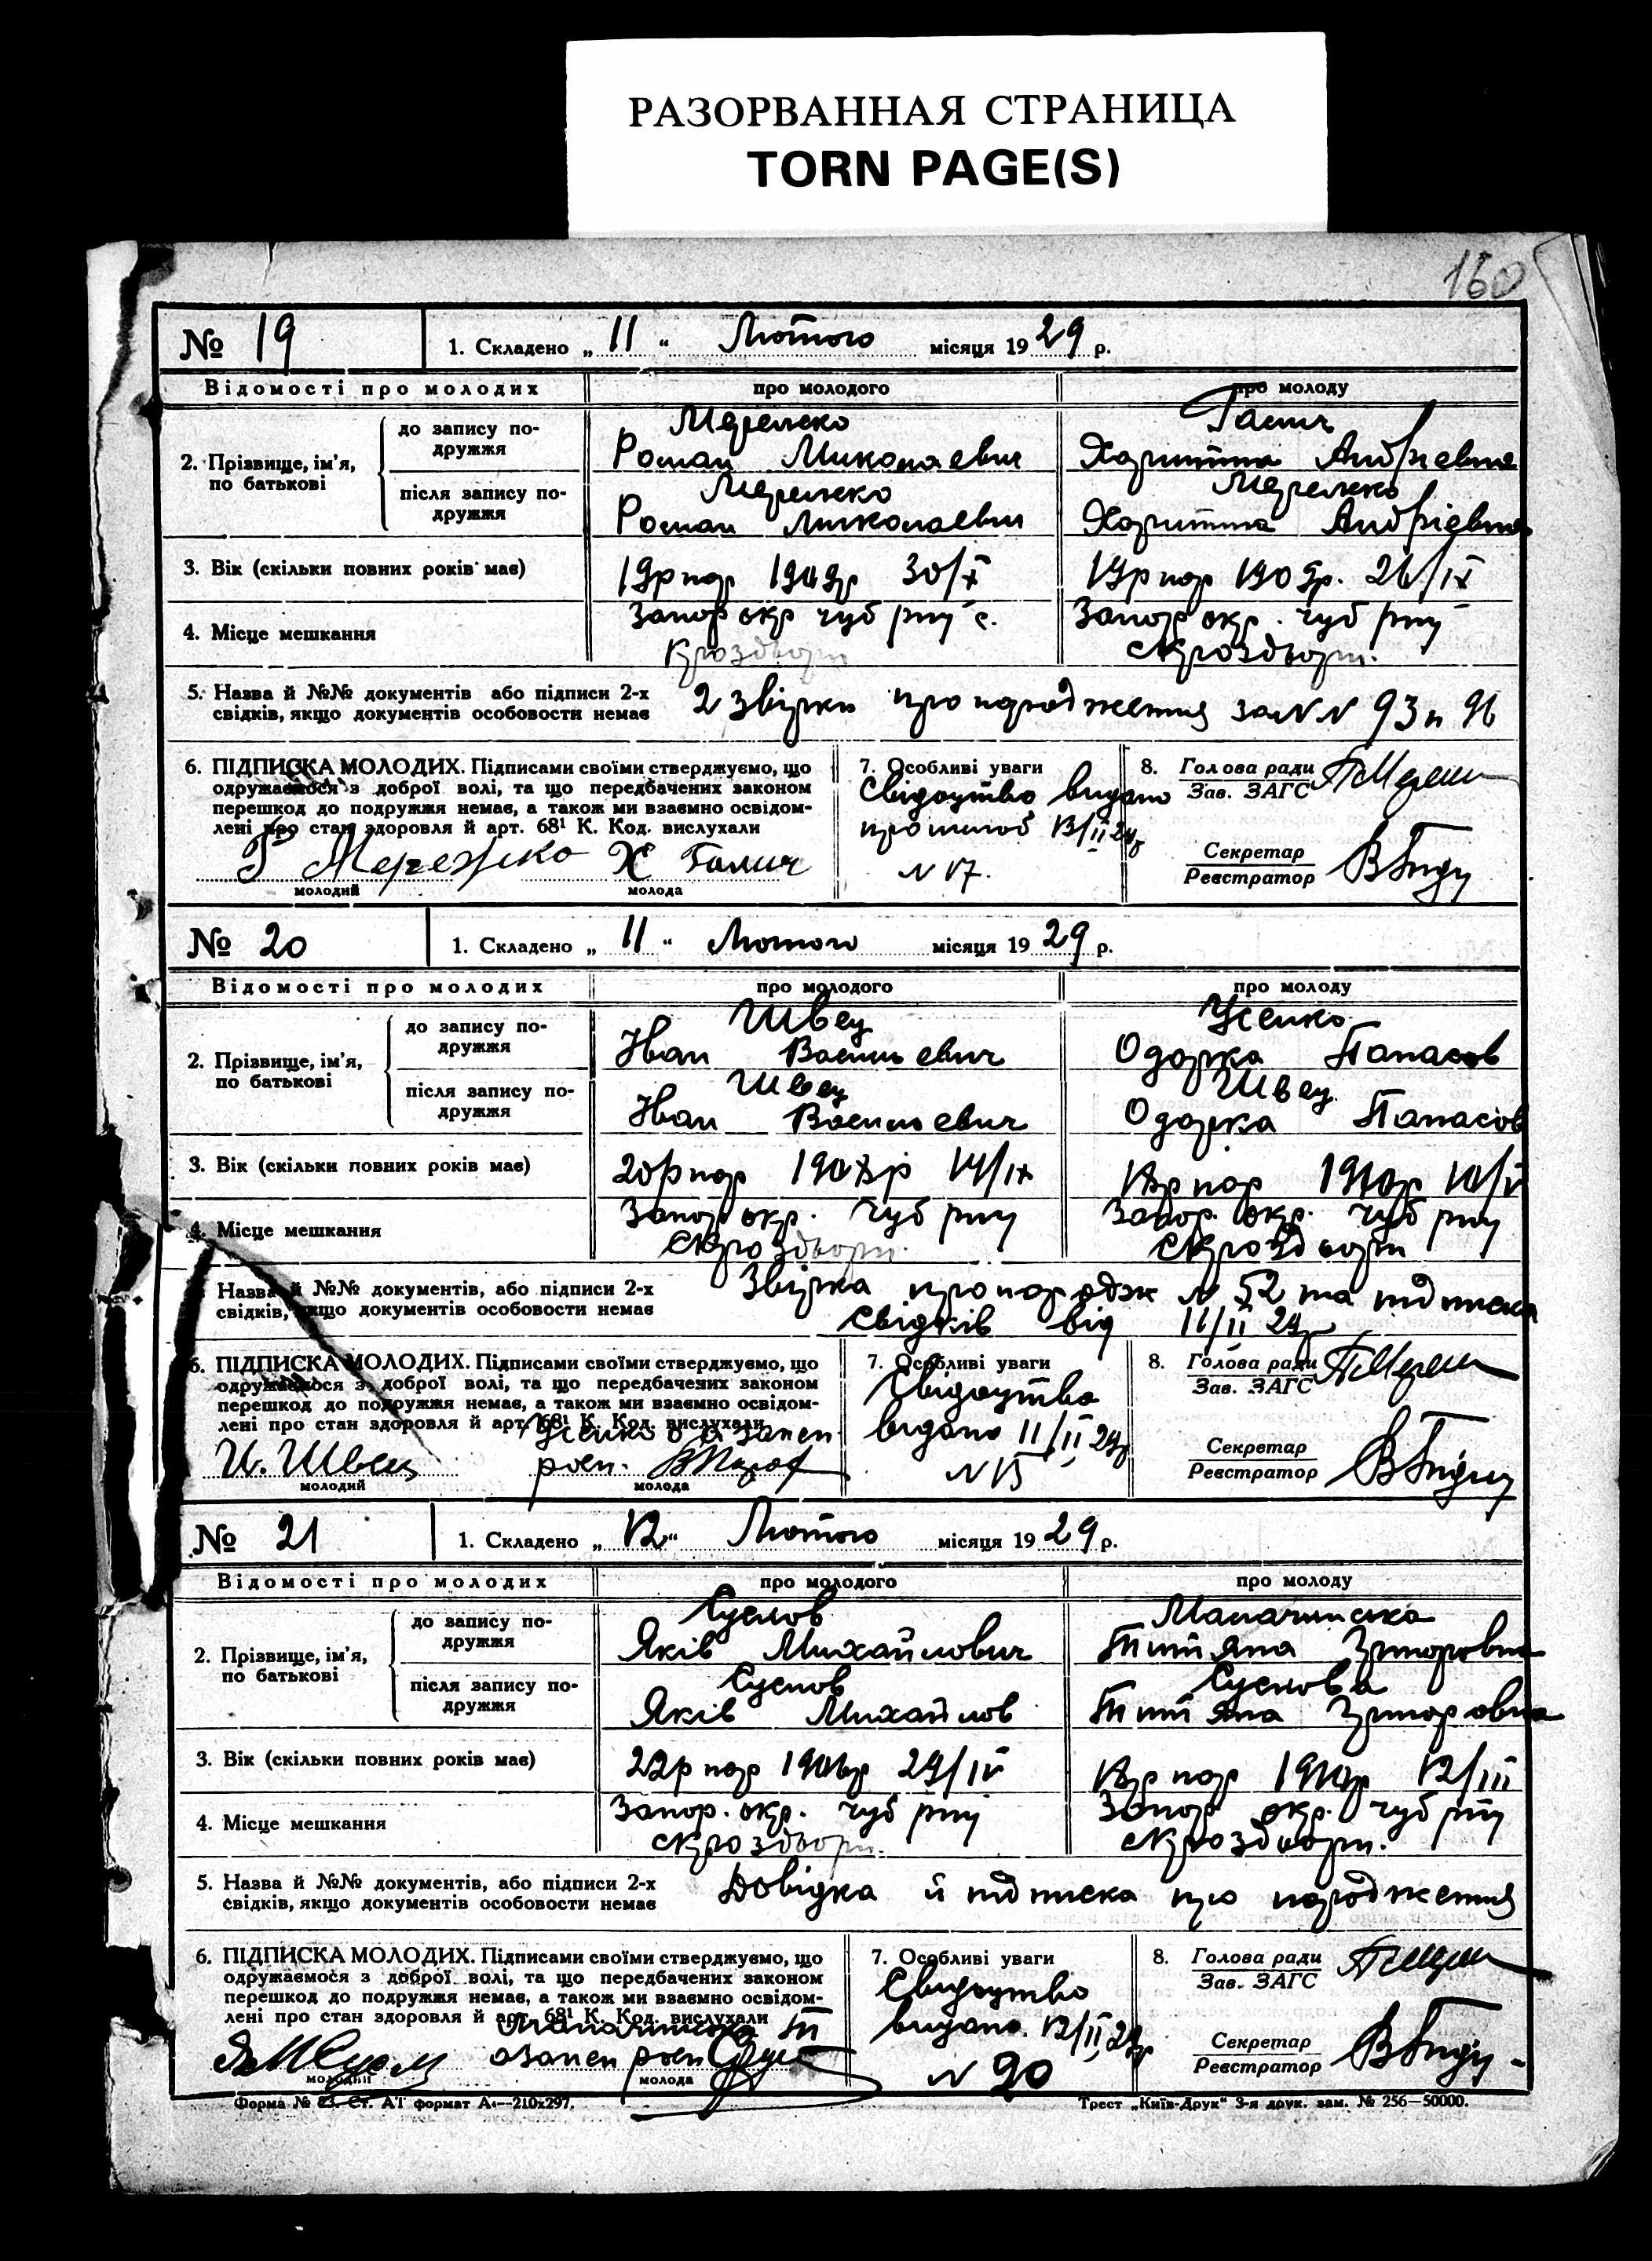 РАЗОРВАННАЯ СТРАНИЦА
TORN PAGE(S)
160
№ 19
1. Складено „ 11 “ Лютого місяця 19 29 р.
Відомості про молодих про молодого про молоду
2. Прізвище, ім'я, по батькові
до запису по-
дружжя
Роман Миколаевич
Андріевна
після запису по-
дружжя
Роман Миколаевич
Андріевна
3. Вік (скільки повних років має)
19р нар 1909р 30/X
19р нар 1909р. 26/IX
4. Місце мешкання
Запор окр чуб рну с.
Запор окр. чуб рну
5. Назва й №№ документів або підписи 2-х
свідків, якщо документів особовости немає
2 звірки про народження за NN 93 и 96
6. ПІДПИСКА МОЛОДИХ. Підписами своїми стверджуємо, що
одружаємося з доброї волі, та що передбачених законом
перешкод до подружжя немає, а також ми взаємно освідом-
лені про стан здоровля й арт. 68¹ К. Код. вислухали
Мережко Х Галич
молодий молода
7. Особливі уваги
Свідоцтво видано
про шлюб 12/II 29р
N 17.
8. Голова ради
Зав. ЗАГС
Секретар
Реєстратор
№ 20
1. Складено „ 11 “ Лютого місяця 19 29 р.
Відомості про молодих про молодого про молоду
2. Прізвище, ім'я,
по батькові
до запису по-
дружжя
Швец
Іван Васильевич
Усенко
Одарка Панасов
після запису по-
дружжя
Швец
Іван Васильевич
Швец
Одарка Панасов
3. Вік (скільки повних років має)
20р нар 1908р 14/IX
18р нар 1910р 10/V
4. Місце мешкання
Запор окр. чуб рну
Запор. окр. чуб рну
Назва й №№ документів, або підписи 2-х
свідків, якщо документів особовости немає
Звірка про народж N 52 та підписка
свідків від 11/II 29р
6. ПІДПИСКА МОЛОДИХ. Підписами своїми стверджуємо, що
одружаємося з доброї волі, та що передбачених законом
перешкод до подружжя немає, а також ми взаємно освідом-
лені про стан здоровля й арт. 68¹ К. Код. вислухали
И. Швец
молодий молода
7. Особливі уваги
Свідоцтво
видано 11/II 29р
8. Голова ради
Зав. ЗАГС
Секретар
Реєстратор
№ 21
1. Складено „ 12 “ Лютого місяця 19 29 р.
Відомості про молодих про молодого про молоду
2. Прізвище, ім'я,
по батькові
до запису по-
дружжя
Суслов
Яків Михайлович
після запису по-
дружжя
Суслов
Яків Михайлов
Суслова
3. Вік (скільки повних років має)
22р нар 1906р 29/IV
18р нар 1910р 12/III
4. Місце мешкання
Запор. окр. чуб рну
Запор окр. чуб рну
5. Назва й №№ документів, або підписи 2-х
свідків, якщо документів особовости немає
Довідка й підписка про народження
6. ПІДПИСКА МОЛОДИХ. Підписами своїми стверджуємо, що
одружаємося з доброї волі, та що передбачених законом
перешкод до подружжя немає, а також ми взаємно освідом-
лені про стан здоровля й арт. 68¹ К. Код. вислухали
молодий молода
7. Особливі уваги
Свидоцтво
видано. 12/II 29р
N 20
8. Голова ради
Зав. ЗАГС
Секретар
Реєстратор
Форма № 23. Ст. АТ формат А₄—210х297.
Трест „Київ-Друк“ 3-я друк. зам. № 256—50000.